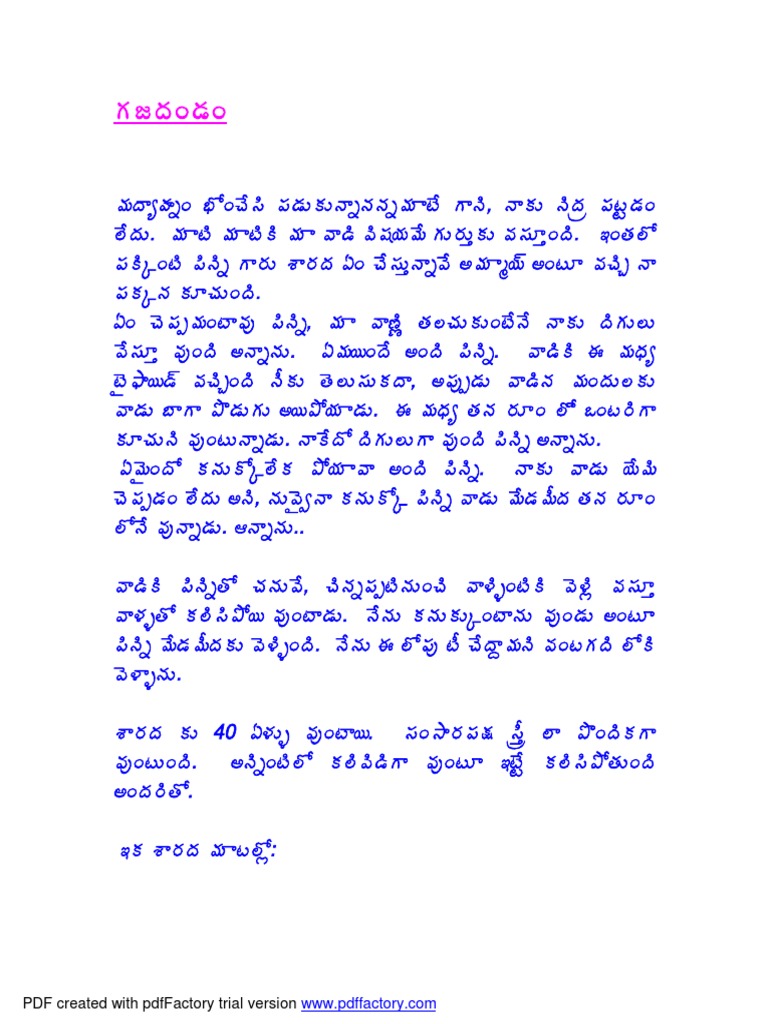 గజదండం
మద్యాహ్నం భోంచేసి పడుకున్నానన్నమాటే గాని, నాకు నిద్ర పట్టడం
లేదు. మాటి మాటికి మా వాడి విషయమే గుర్తుకు వస్తూంది. ఇంతలో
పక్కింటి పిన్ని గారు శారద ఏం చేస్తున్నావే అమ్మాయ్ అంటూ వచ్చి నా
పక్కన కూచుంది.
ఏం చెప్పమంటావు పిన్ని, మా వాణ్ణి తలచుకుంటేనే నాకు దిగులు
వేస్తూ వుంది అన్నాను. ఏమయిందే అంది పిన్ని. వాడికి ఈ మధ్య
టైఫాయిడ్ వచ్చింది నీకు తెలుసుకదా, అప్పుడు వాడిన మందులకు
వాడు బాగా పొడుగు అయిపోయాడు. ఈ మధ్య తన రూం లో ఒంటరిగా
కూచుని వుంటున్నాడు. నాకేదో దిగులుగా వుంది పిన్ని అన్నాను.
ఏమైందో కనుక్కోలేక పోయావా అంది పిన్ని. నాకు వాడు యేమి
చెప్పడం లేదు అని, నువ్వైనా కనుక్కో పిన్ని వాడు మేడమీద తన రూం
లోనే వున్నాడు. ఆన్నాను..
వాడికి పిన్నితో చనువే, చిన్నప్పటినుంచి వాళ్ళింటికి వెళ్లి వస్తూ
వాళ్ళతో కలిసిపోయి వుంటాడు. నేను కనుక్కుంటాను వుండు అంటూ
పిన్ని మేడమీదకు వెళ్ళింది. నేను ఈ లోపు టీ చేద్దామని వంటగది లోకి
వెళ్ళాను.
శారద కు 40 ఏళ్ళు వుంటాయి. సంసారపక్ష స్త్రీ లా పొందికగా
వుంటుంది. అన్నింటిలో కలిపిడిగా వుంటూ ఇట్టే కలిసిపోతుంది
అందరితో.
ఇక శారద మాటల్లో:
PDF created with pdfFactory trial version www.pdffactory.com